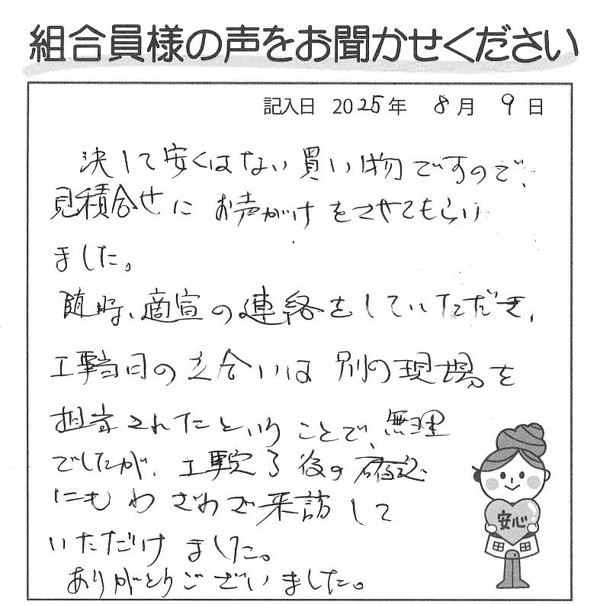 組合員様の声をお聞かせください
記入日 2025年 8月 9日
決して安くはない買い物ですので、
見積合せに お声がけをさせてもらい
ました。
随時、適宜の連絡をしていただき、
工事当日の立合いは 別の現場を
担当されたということで、無理
でしたが、工事完了後の確認
にもわざわざ来訪して
いただけました。
ありがとうございました。
安心